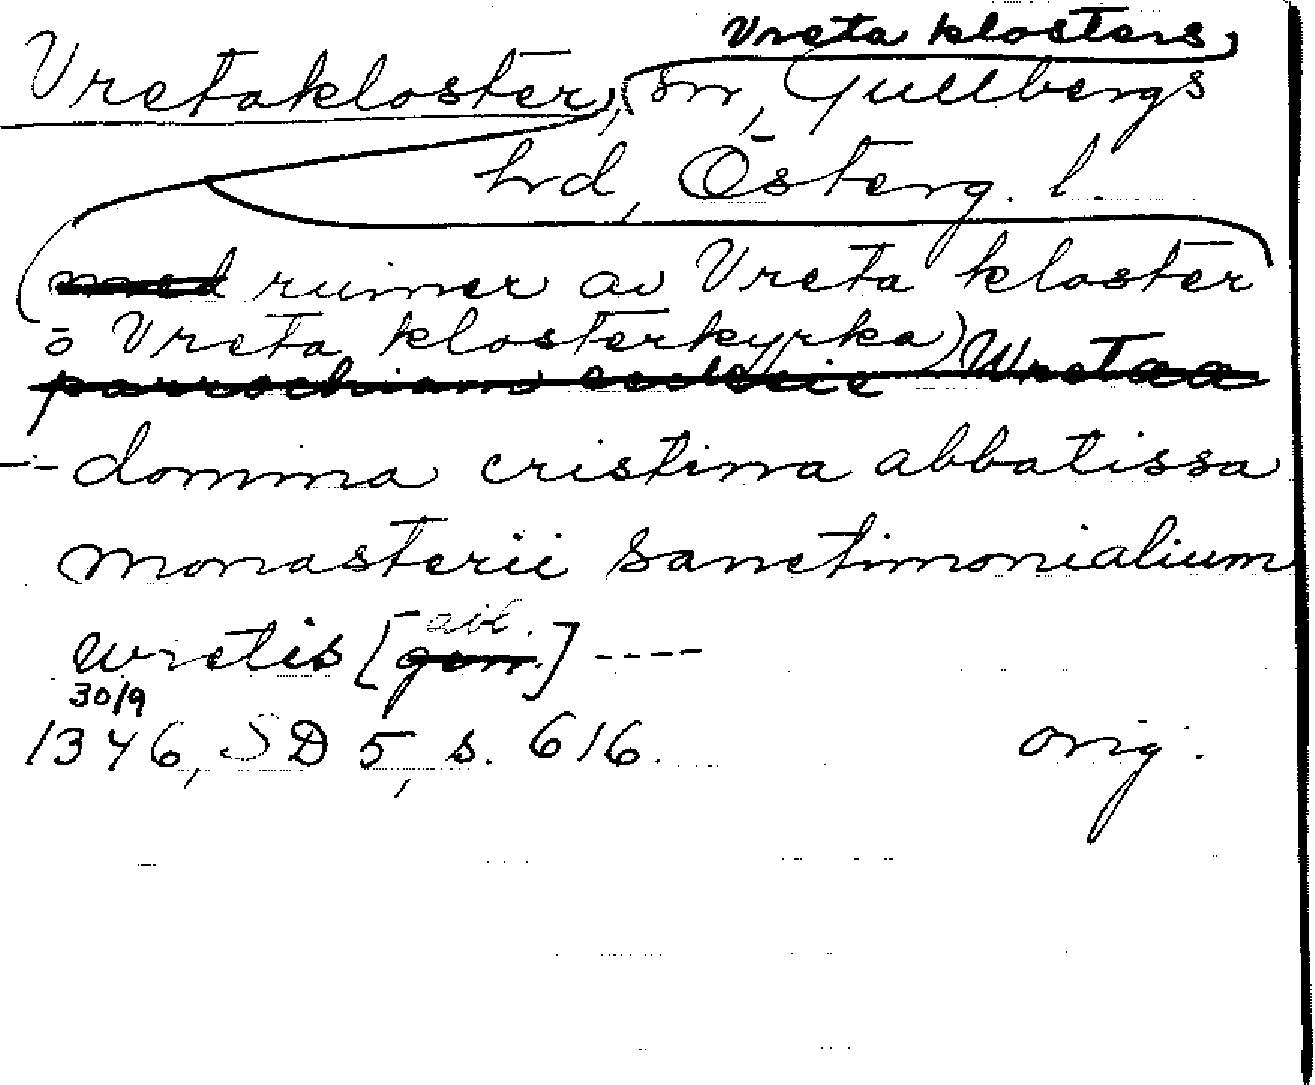 Vreta klosters
Vretakloster, sn, Gullbergs
hrd, Österg. l.
med ruiner av Vreta kloster
o Vreta klosterkyrka)
parrochiam Wretaa
--- domina cristina abbatissa
monasterii sanctimonialium
abl.
wretis [gen.] ----
30/9
1346, SD 5, s. 616. orig.